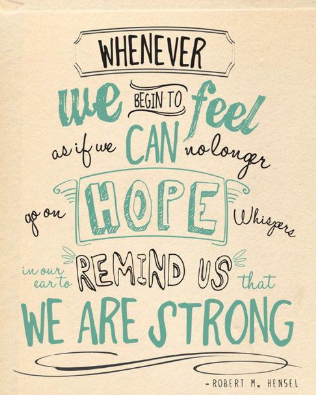 WHENEVER
we BEGIN TO feel
as if we CAN no longer
go on HOPE Whispers
in our ear to REMIND US that
WE ARE STRONG
- ROBERT M. HENSEL